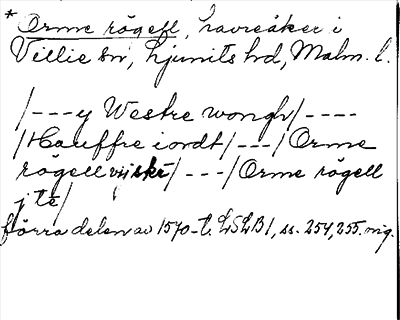 * Orme rögell, havreåker i
Villie sn, Ljunits hd, Malm. l.
/---y Westre wongh/----
/Hauffre iordt/---/Orme
rögell viiskt/---/Orme rögell
j té/
förra delen av 1570-t. LSLB1, ss. 254, 255. mg.